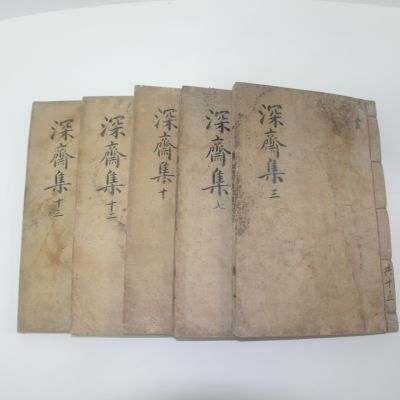 深齋集 三
共十三
深齋集 七
深齋集 十
深齋集 十二
深齋集 十三